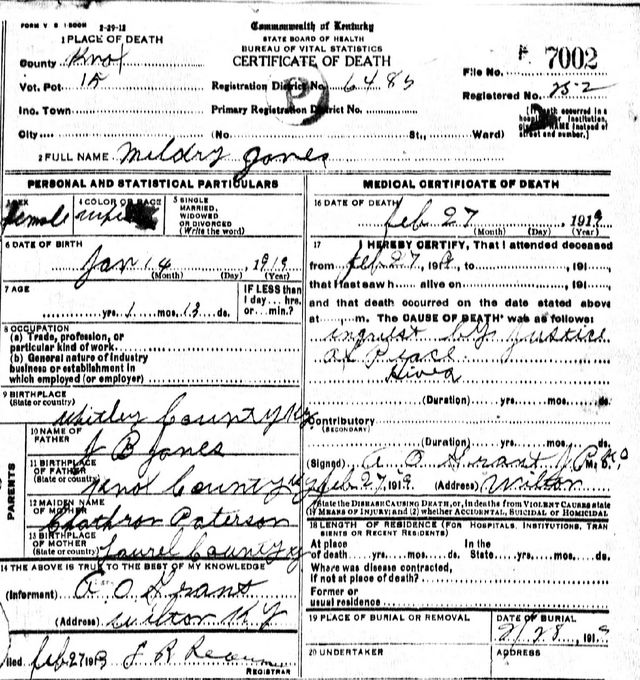 FORM V. S. 1-500M 2-29-12
Commonwealth of Kentucky
STATE BOARD OF HEALTH
BUREAU OF VITAL STATISTICS
CERTIFICATE OF DEATH
1 PLACE OF DEATH
County Knox
Vot. Pct 15
Inc. Town
City (No. St., Ward)
Registration District No. 6485
Primary Registration District No.
File No. 7002
Registered No. 252
(If death occurred in a hospital or institution, give its NAME instead of street and number.)
2 FULL NAME Mildry Jones
PERSONAL AND STATISTICAL PARTICULARS
3 SEX female
4 COLOR OR RACE white
5 SINGLE MARRIED, WIDOWED OR DIVORCED (Write the word)
6 DATE OF BIRTH
Jan 14 1919
(Month) (Day) (Year)
7 AGE
yrs. 1 mos. 13 ds.
IF LESS than 1 day... hrs. or... min.?
8 OCCUPATION
(a) Trade, profession, or particular kind of work
(b) General nature of industry business or establishment in which employed (or employer)
9 BIRTHPLACE
(State or country)
Whitley County Ky
PARENTS
10 NAME OF FATHER J B Jones
11 BIRTHPLACE OF FATHER (State or country) Knox County Ky
12 MAIDEN NAME OF MOTHER Paterson
13 BIRTHPLACE OF MOTHER (State or country) Laurel County Ky
14 THE ABOVE IS TRUE TO THE BEST OF MY KNOWLEDGE
(Informant) A. O Grant
(Address) Wilton Ky
Filed feb 27 191 J R
REGISTRAR
MEDICAL CERTIFICATE OF DEATH
16 DATE OF DEATH
feb 27 1919
(Month) (Day) (Year)
17 I HEREBY CERTIFY, That I attended deceased
from feb 27, 1919, to 191
that I last saw h alive on 191
and that death occurred on the date stated above
at m. The CAUSE OF DEATH* was as follows:
inquest by Justice
of Peace
(Duration) yrs. mos. ds.
Contributory
(SECONDARY)
(Duration) yrs. mos. ds.
(Signed) A O Grant M. D.
feb 27 1919 (Address) Wilton
*State the DISEASE CAUSING DEATH, or, in deaths from VIOLENT CAUSES state (1) MEANS OF INJURY; and (2) whether ACCIDENTAL, SUICIDAL or HOMICIDAL.
18 LENGTH OF RESIDENCE (FOR HOSPITALS, INSTITUTIONS, TRANSIENTS OR RECENT RESIDENTS)
At place of death yrs. mos. ds. In the State yrs. mos. ds.
Where was disease contracted, if not at place of death?
Former or usual residence
19 PLACE OF BURIAL OR REMOVAL
DATE OF BURIAL
2/28, 1919
20 UNDERTAKER
ADDRESS